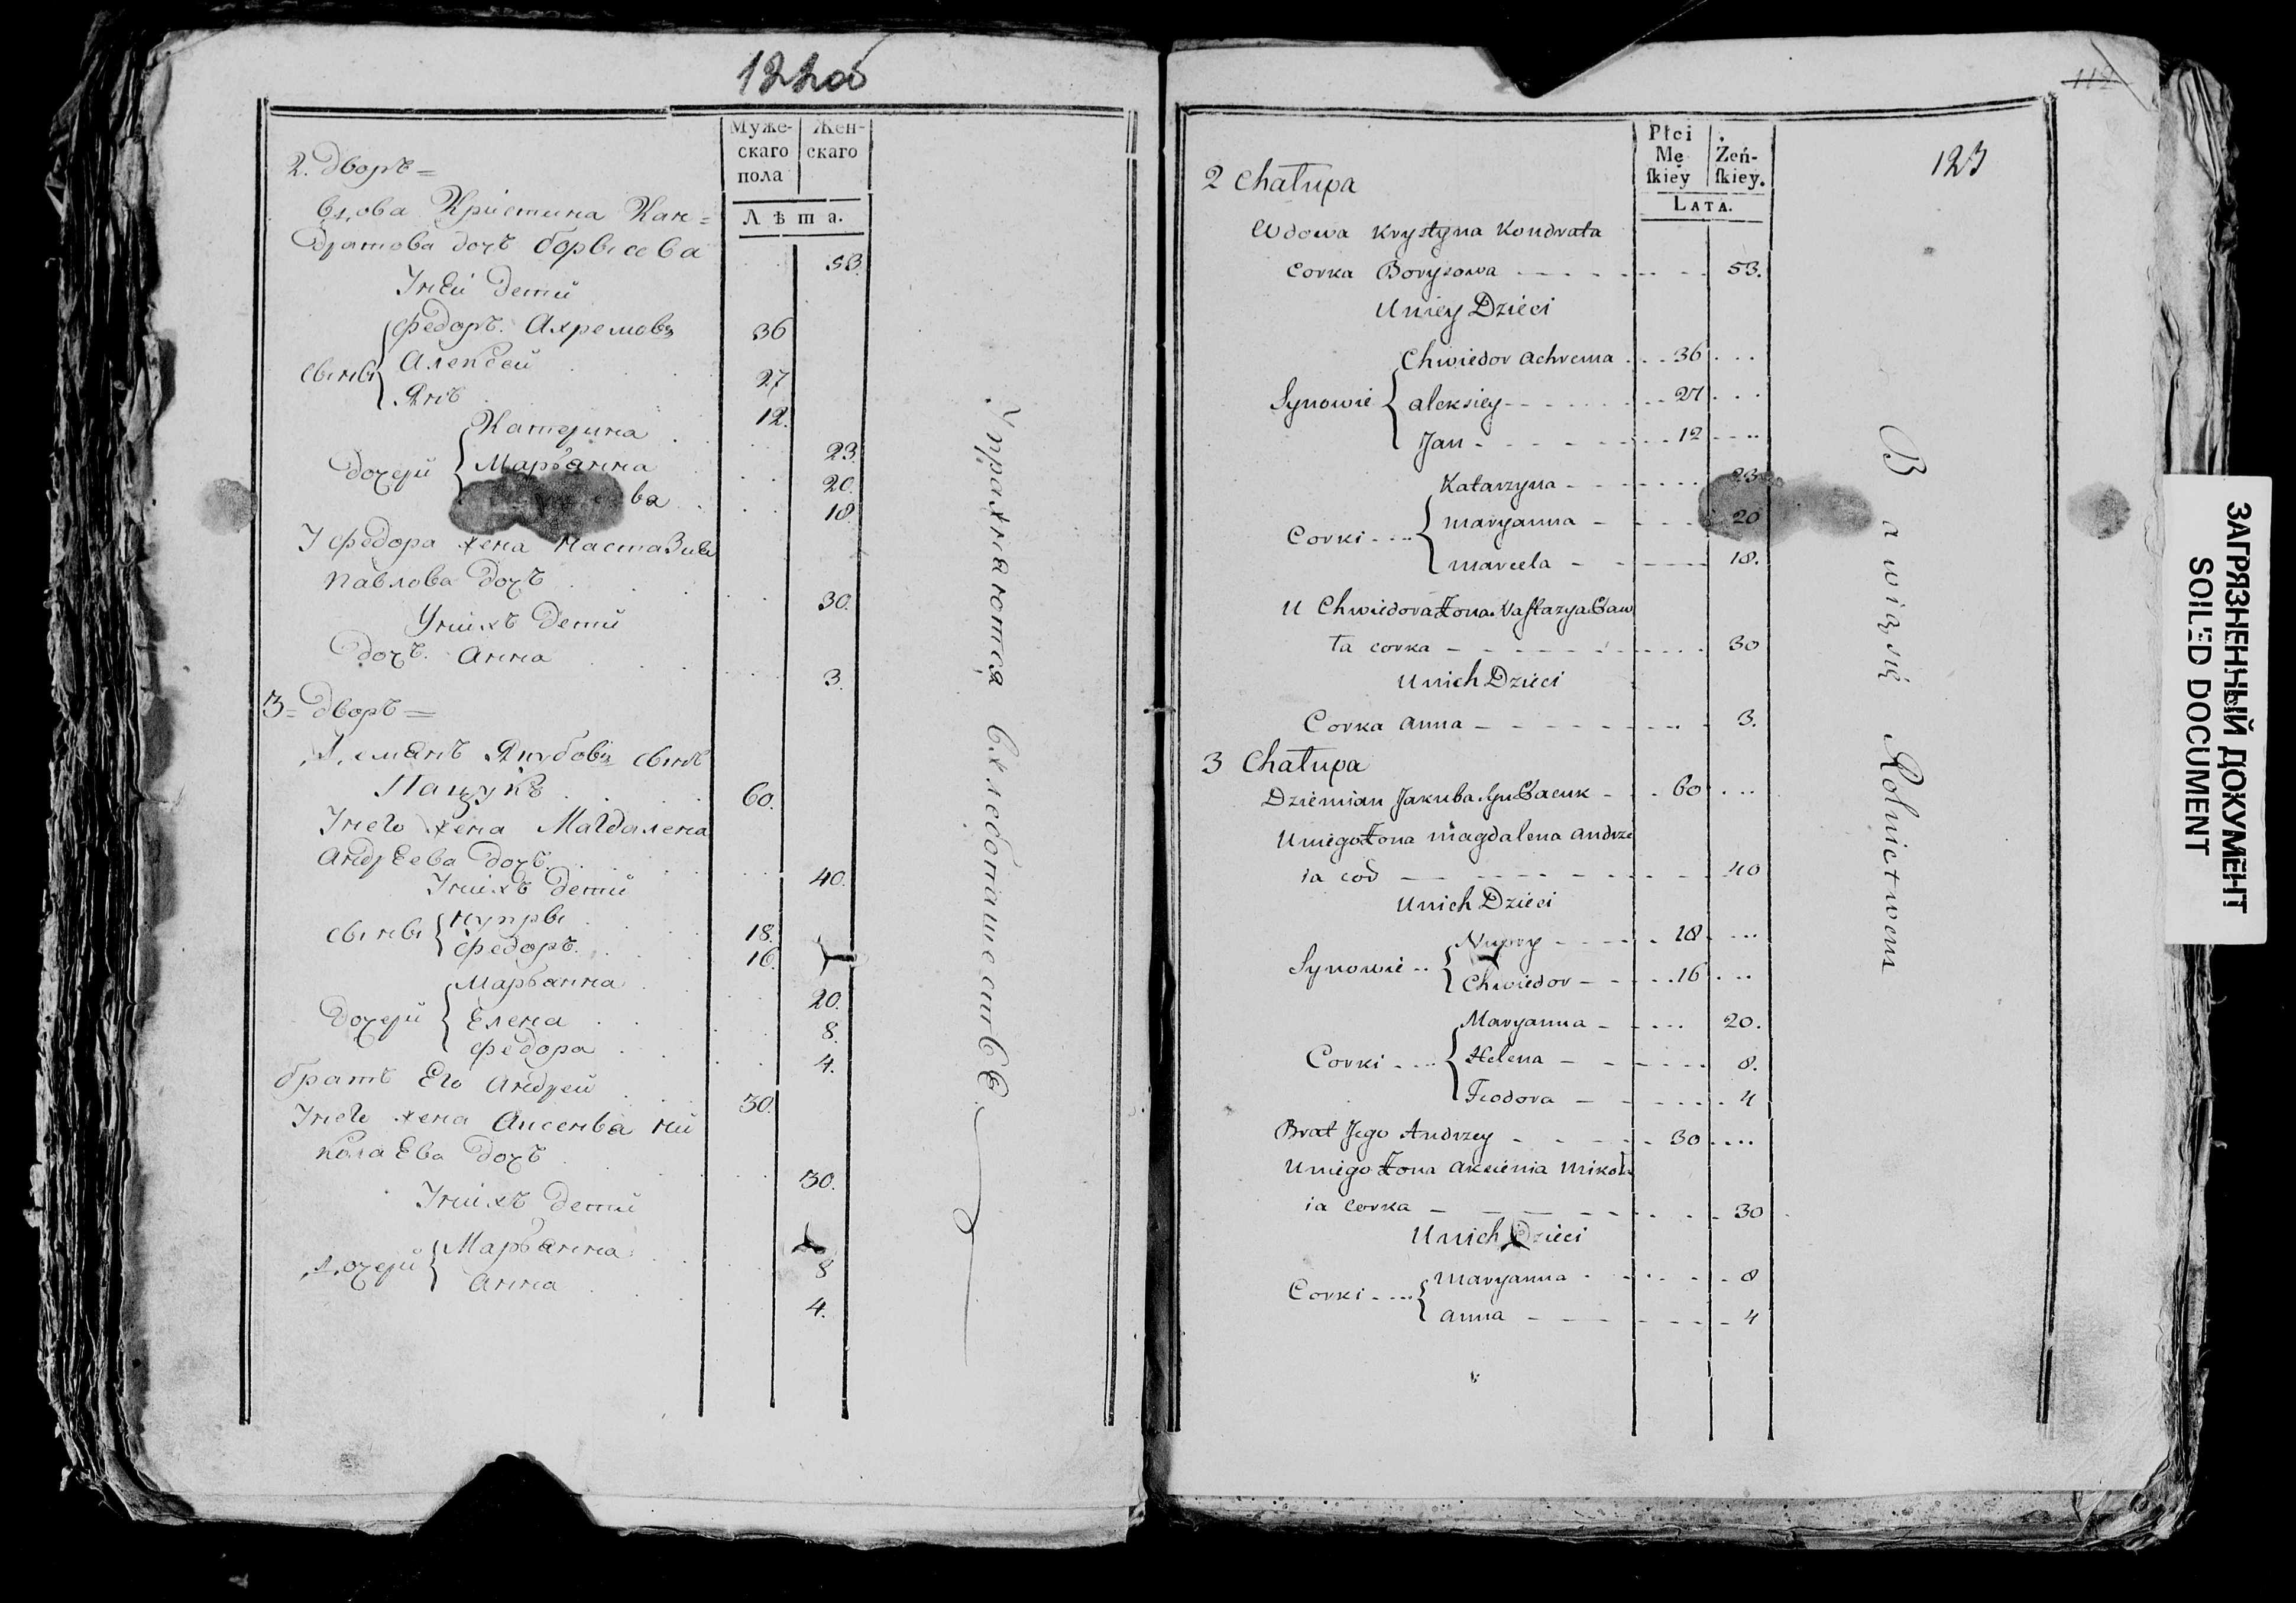 122об
Муже-
скаго
пола
Жен-
скаго
Лѣта.
2. Дворъ =
Вдова Христина Кон=
дратова дочь борысова 53.
Унеи дети
Федоръ Ахремовъ 36
Алексей 27
Сыны
Янъ 12.
Катерина 23.
Дочери
Марьанна 20.
18
У Федора жена Настазия
павлова дочь 30.
Униихъ дети
Дочь Анна 3.
3 = Дворъ =
Демянъ Якубовъ сынъ
Пацукъ 60.
Унего жена Магдалена
Андреева дочь 40.
Униихъ дети
Сыны
Нупры 18.
Федоръ 16.
Марьанна 20.
Дочери
Елена 8.
Федора 4.
братъ Его Андрей 30.
Унего жена Аксенья ни
колаева дочь 30.
Униихъ дети
Дочери
Марьанна 8
Анна 4.
Упражняются вхлебопашестве
112
123
Płci
Mę
ſkiey
Żeń-
ſkiey.
LATA.
2 Chałupa
Wdowa Krystyna Kondrata
Corka Borysowa 53.
Uniey Dzieci
Chwiedor Achrema 36
Synowie
Aleksiey 27
Jan 12
Katarzyna 23
Corki
Maryanna 20
Marcela 18.
U Chwiedora Żona Nastazya Paw
ła corka 30
Unich Dzieci
Corka Anna 3.
3 Chałupa
Dziemian Jakuba Syn Pacuk 60
Uniego Żona Magdalena Andrze
ia cor 40
Unich Dzieci
Synowie
Nupry 18
Chwiedor 16
Maryanna 20.
Corki
Helena 8.
Teodora 4
Brat Jego Andrzey 30
Uniego Żona Aksienia Mikoła
ia corka 30
Unich Dzieci
Corki
Maryanna 8
Anna 4
Bawią się Rolnictwem
ЗАГРЯЗНЕННЫЙ ДОКУМЕНТ
SOILED DOCUMENT